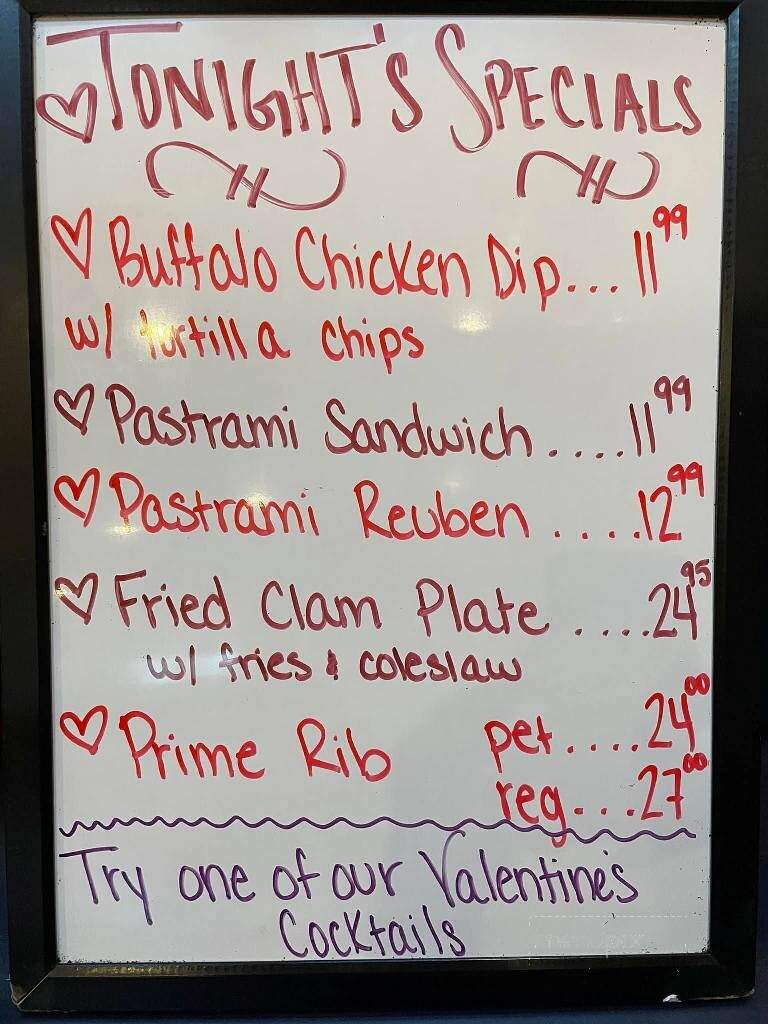 TONIGHT'S SPECIALS
Buffalo Chicken Dip... 11.99
w/ tortilla chips
Pastrami Sandwich....11.99
Pastrami Reuben ....12.99
Fried Clam Plate ....24.95
w/ fries & coleslaw
Prime Rib pet....24.00
reg...27.00
Try one of our Valentine's
Cocktails